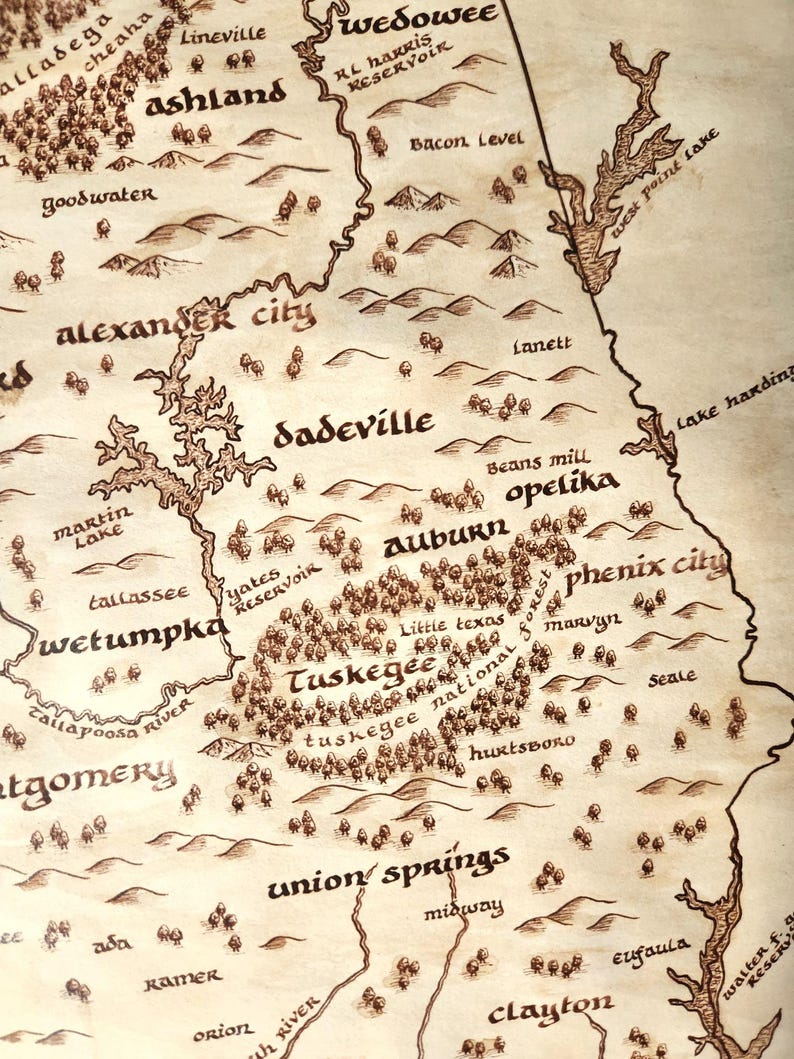 Wedowee
Lineville
alladega
cheaha
RL Harris
Reservoir
ashland
Bacon Level
goodwater
West Point Lake
alexander city
Lanett
Lake Harding
dadeville
Beans Mill
opelika
martin
Lake
auburn
phenix city
yates
Reservoir
tallassee
Little texas
marvyn
wetumpka
Tuskegee
tuskegee national forest
Seale
Tallapoosa River
hurtsboro
tgomery
union springs
midway
ada
eufaula
Walter F.
Reservoir
Ramer
clayton
orion
River